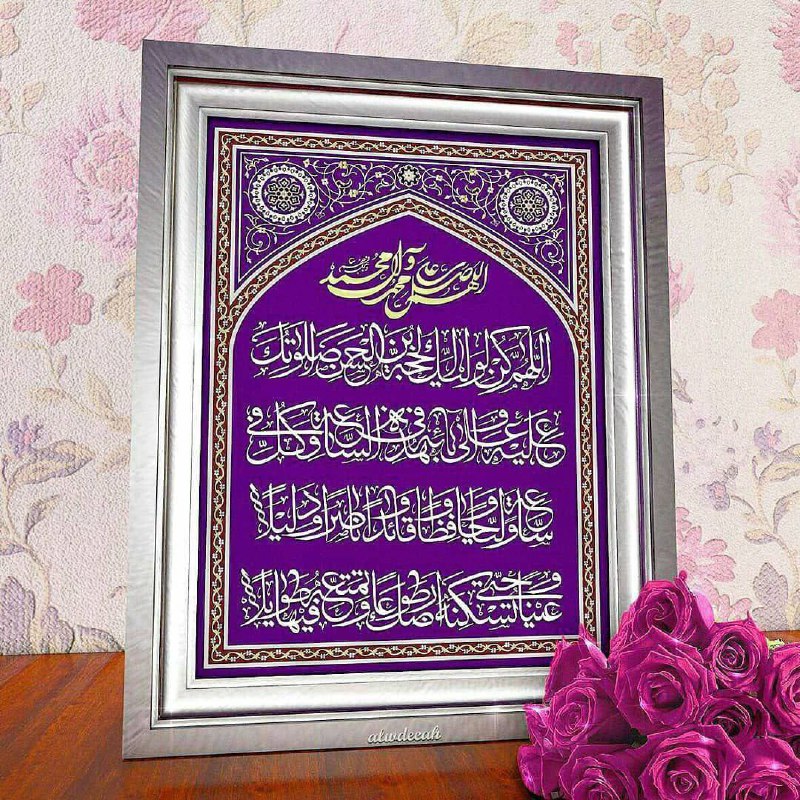 اللهم صل علی محمد وآل محمد
اللهم کن لولیک الحجة بن الحسن صلواتک
علیه وعلی آبائه في هذه الساعة وفي کل
ساعة ولیا وحافظا وقائدا وناصرا ودلیلا
وعینا حتی تسکنه أرضک طوعا وتمتعه فیها طویلا
alwdeeah